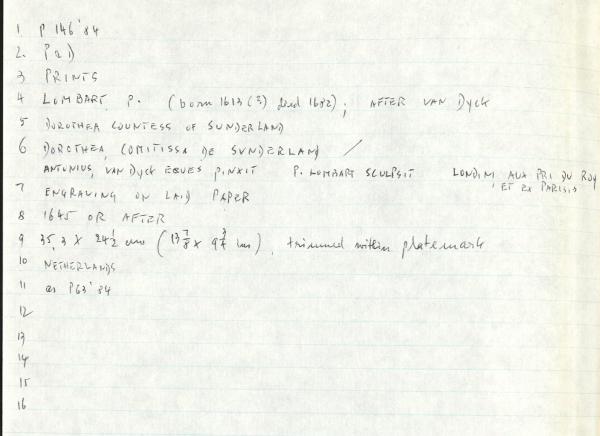 1 P 146'84
2. P&D
3 PRINTS
4 LOMBART, P. (born 1613 (?) died 1682); AFTER VAN DYCK
5 DOROTHEA COUNTESS OF SUNDERLAND
6 DOROTHEA, COMITISSA DE SUNDERLAND /
ANTONIUS, VAN DYCK EQUES PINXIT P. LOMBART SCULPSIT LONDINI AUX PRI DU ROY
ET EX PARISIS
7 ENGRAVING ON LAID PAPER
8 1645 OR AFTER
9 35,3 X 24½ cm (13⅞ X 9¾ ins), trimmed within platemark
10 NETHERLANDS
11 as P63'84
12
13
14
15
16